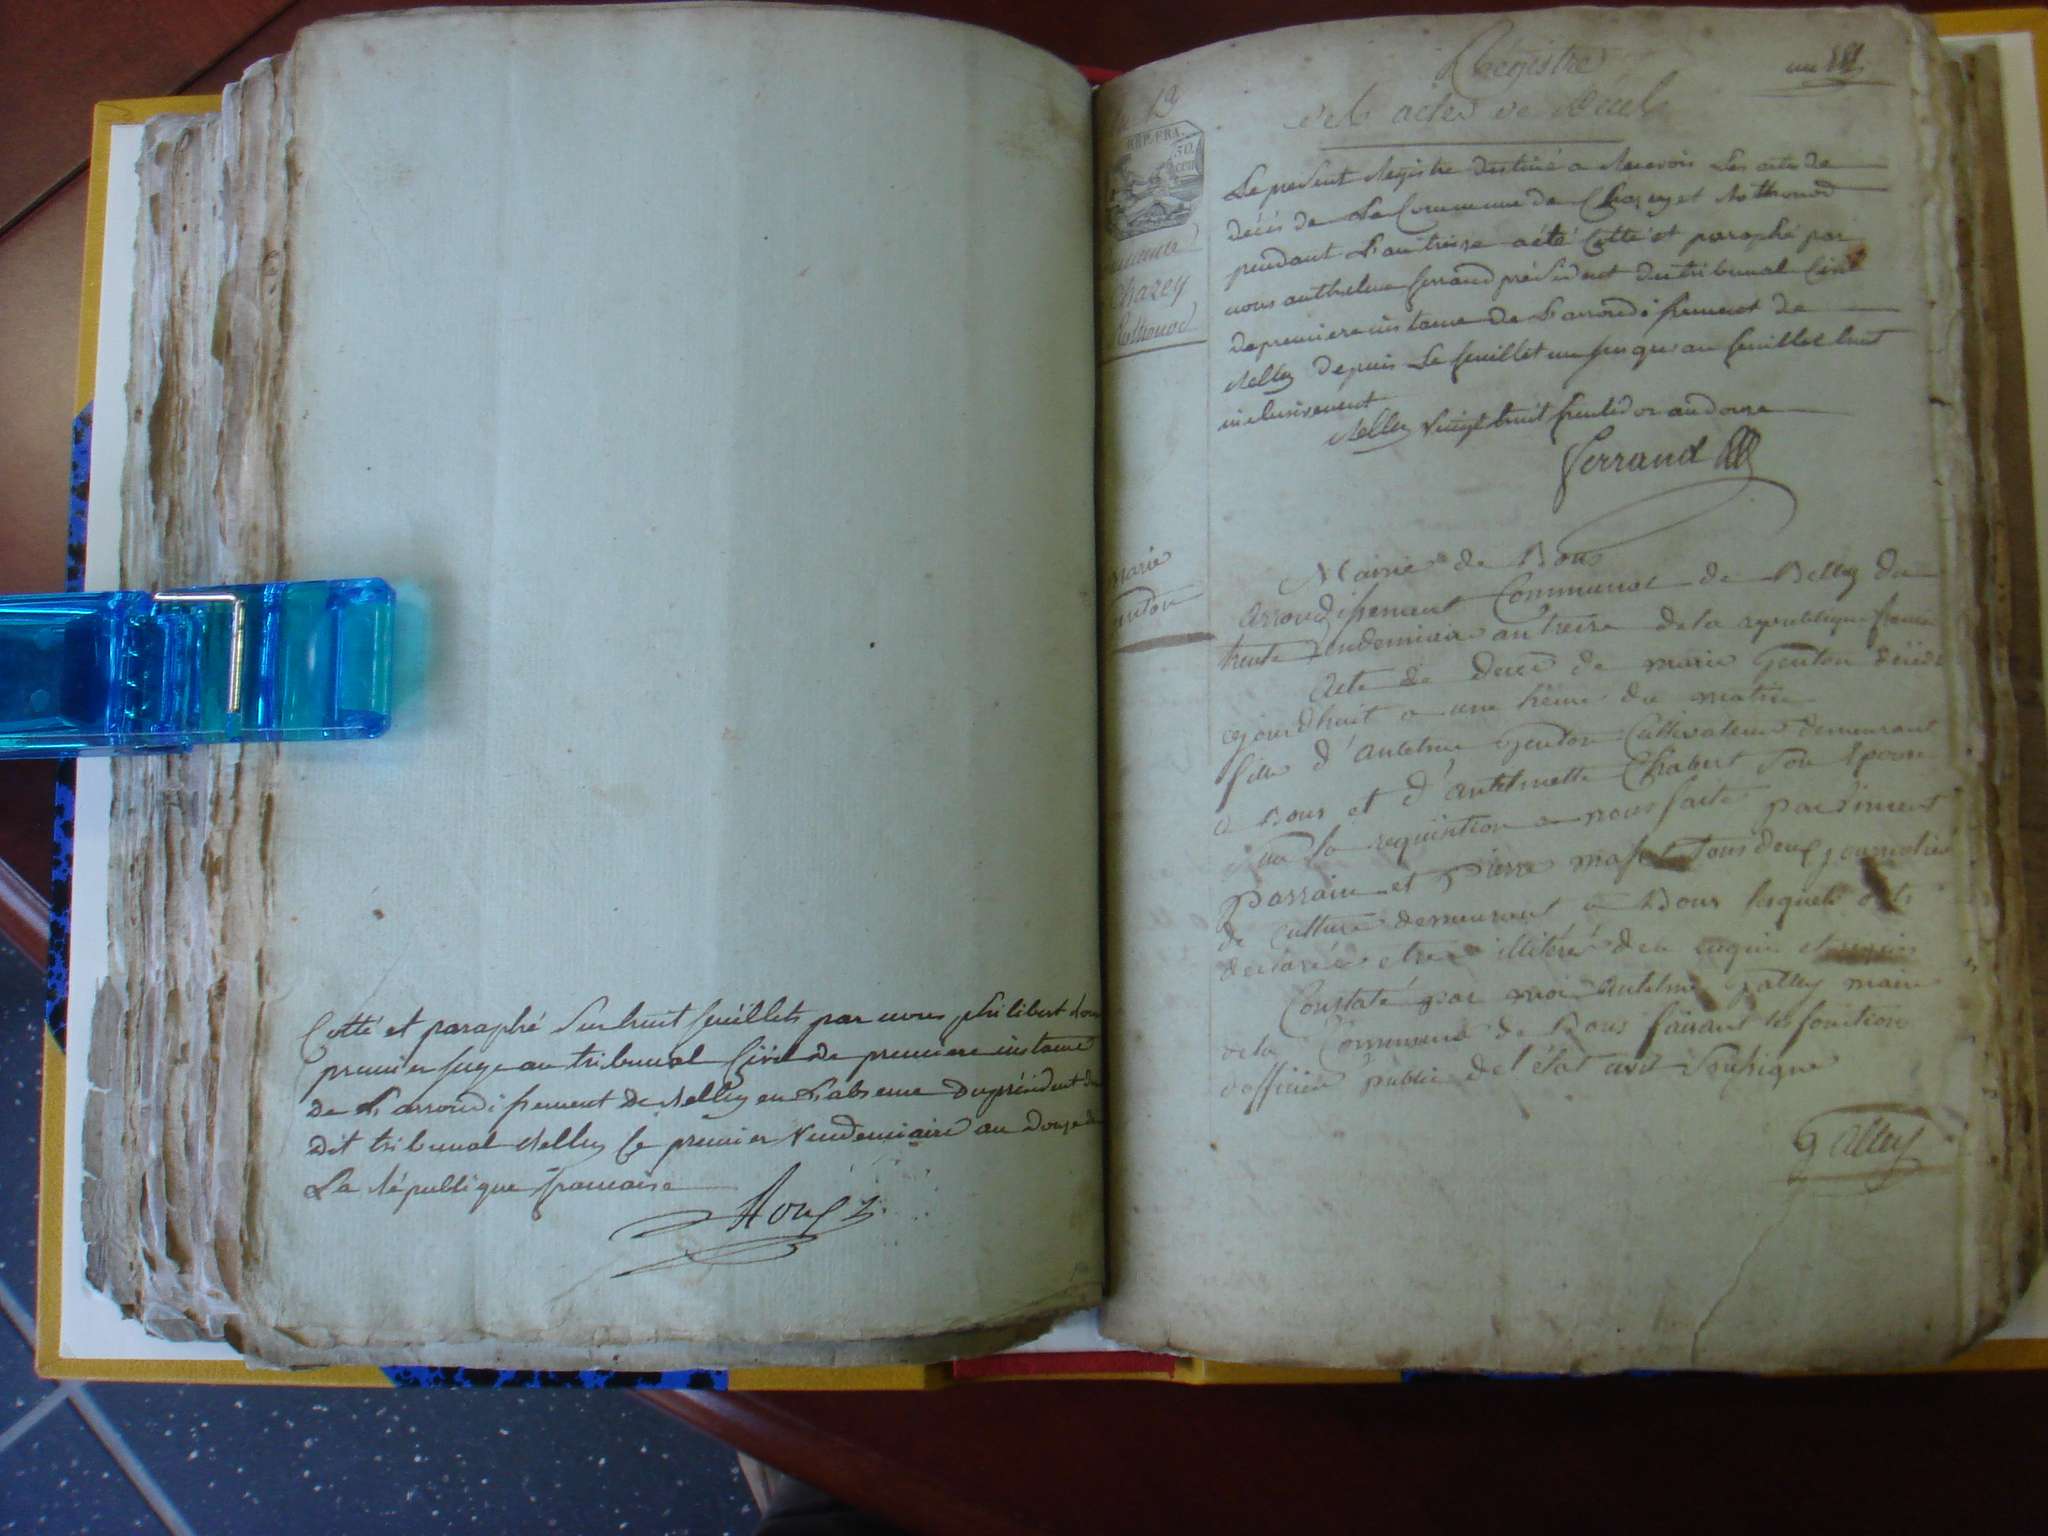 Cotté et paraphé Sur huit feuillets par nous philibert
premier juge au tribunal Civil de premiere instance
de L'arrondissement De Belley en L'absence Du président du
dit tribunal Belley Le premier Vendemiaire an Douze de
La République francaise
an 13
REP. FRA.
50
cen
Chazey
Rothonod
Marie
Genton
Régistre
des actes de décès
un
Le présent Registre destiné a Recevoir Les actes de
décès de La Commune de Chazey et Rothonod
pendant L'an treize a été Cotté et paraphé par
nous anthelme ferrand président du tribunal Civil
de premiere instance de L'arrondissement de
Belley depuis Le feuillet un jusqu'au feuillet huit
inclusivement
Belley Vingt huit fructidor an douze
Ferrand
Mairie de Bons
arrondissement Communal de Belley du
trente vendemiaire an treize de la republique francaise
Acte de decès de marie Genton décédé
cejourdhuit a une heure du matin
fille d'antelme Genton Cultivateur demeurant
a Bons et d'antelmette Chabert Son Epouse
Sur la requisition a nous faite par Vincent
Parrain et Pierre tous deux journalier
de Culture demeurant a Bons lesquels ont
declaré etre illitéré de ce enquis et requis
Constaté par moi antelme Gallay maire
de la Commune de Bons faisant les fonction
d'officier public de l'état civil Soussigné
gallay